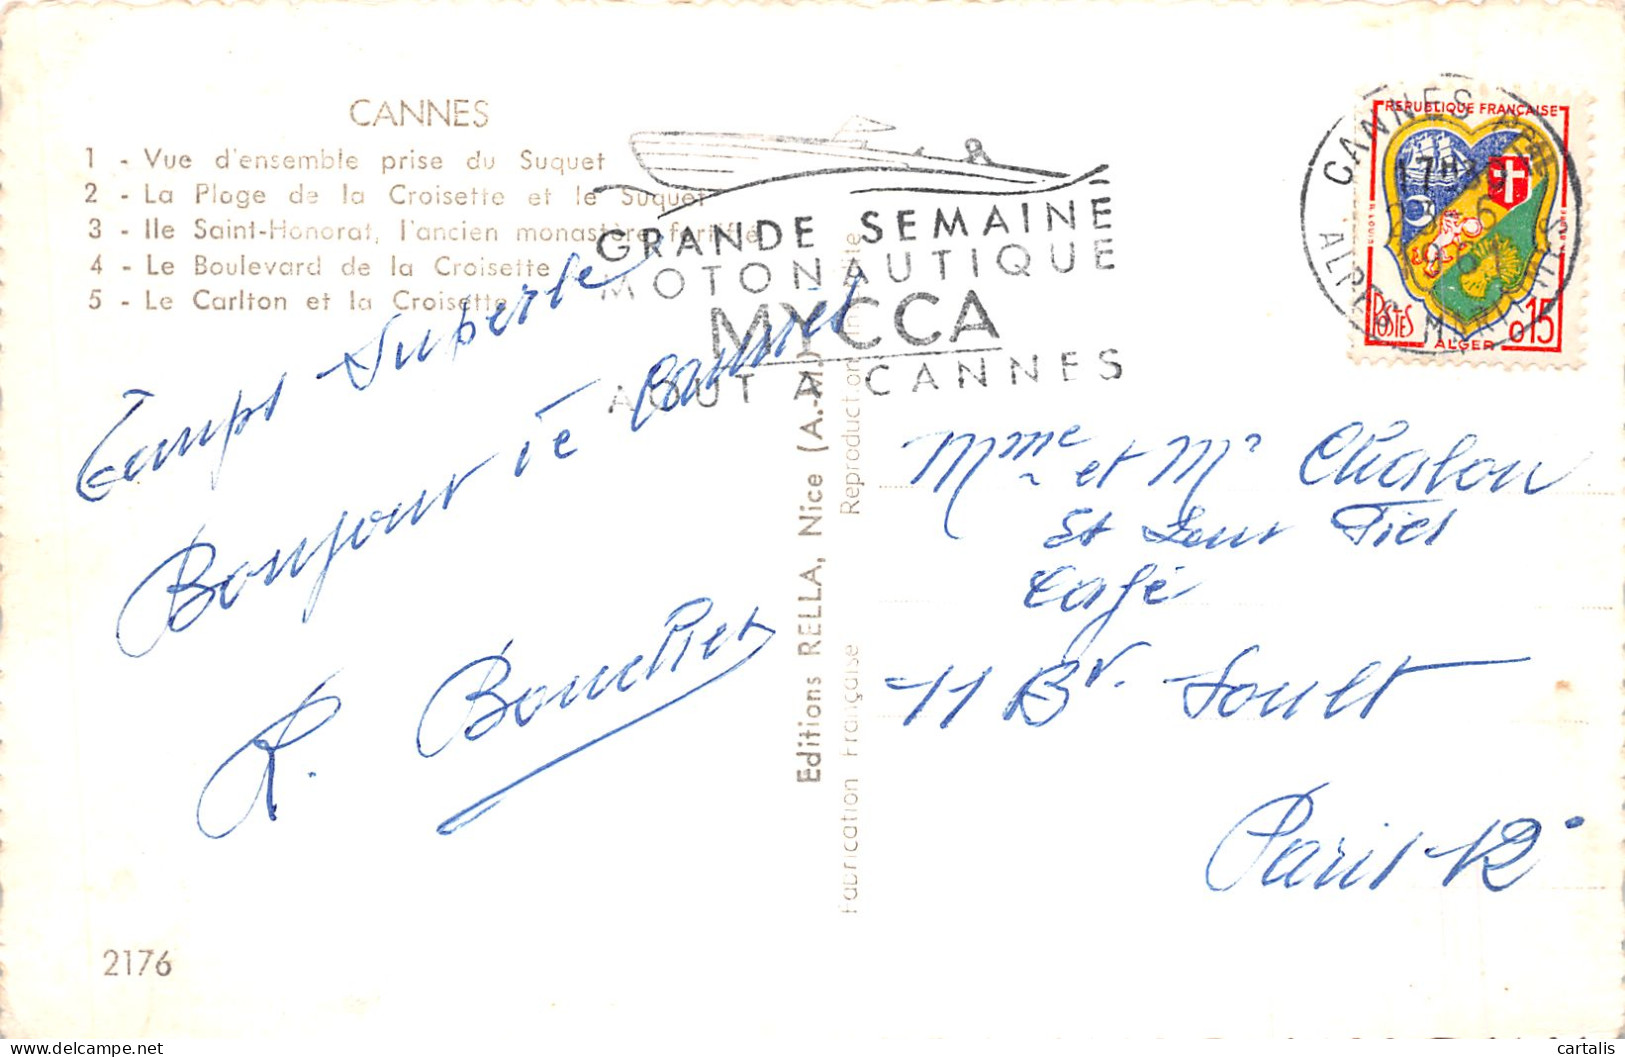 CANNES
1 - Vue d'ensemble prise du Suquet
2 - La Plage de la Croisette et le Suquet
3 - Ile Saint-Honorat, l'ancien monastère fortifié
4 - Le Boulevard de la Croisette
5 - Le Carlton et la Croisette
GRANDE SEMAINE
MOTONAUTIQUE
MYCCA
AOUT A CANNES
CANNES
17H
ALPES MARITIMES
REPUBLIQUE FRANÇAISE
POSTES
ALGER
0,15
Temps Superbe
Bonjour de Cannes
R. Bouchet
Editions RELLA, Nice (A.-M.)
Fabrication Française
Reproduction interdite
Mme et Mr Chalon
Et Leur Fils
Café
11 Bv. Soult
Paris 12e
2176
cartalis